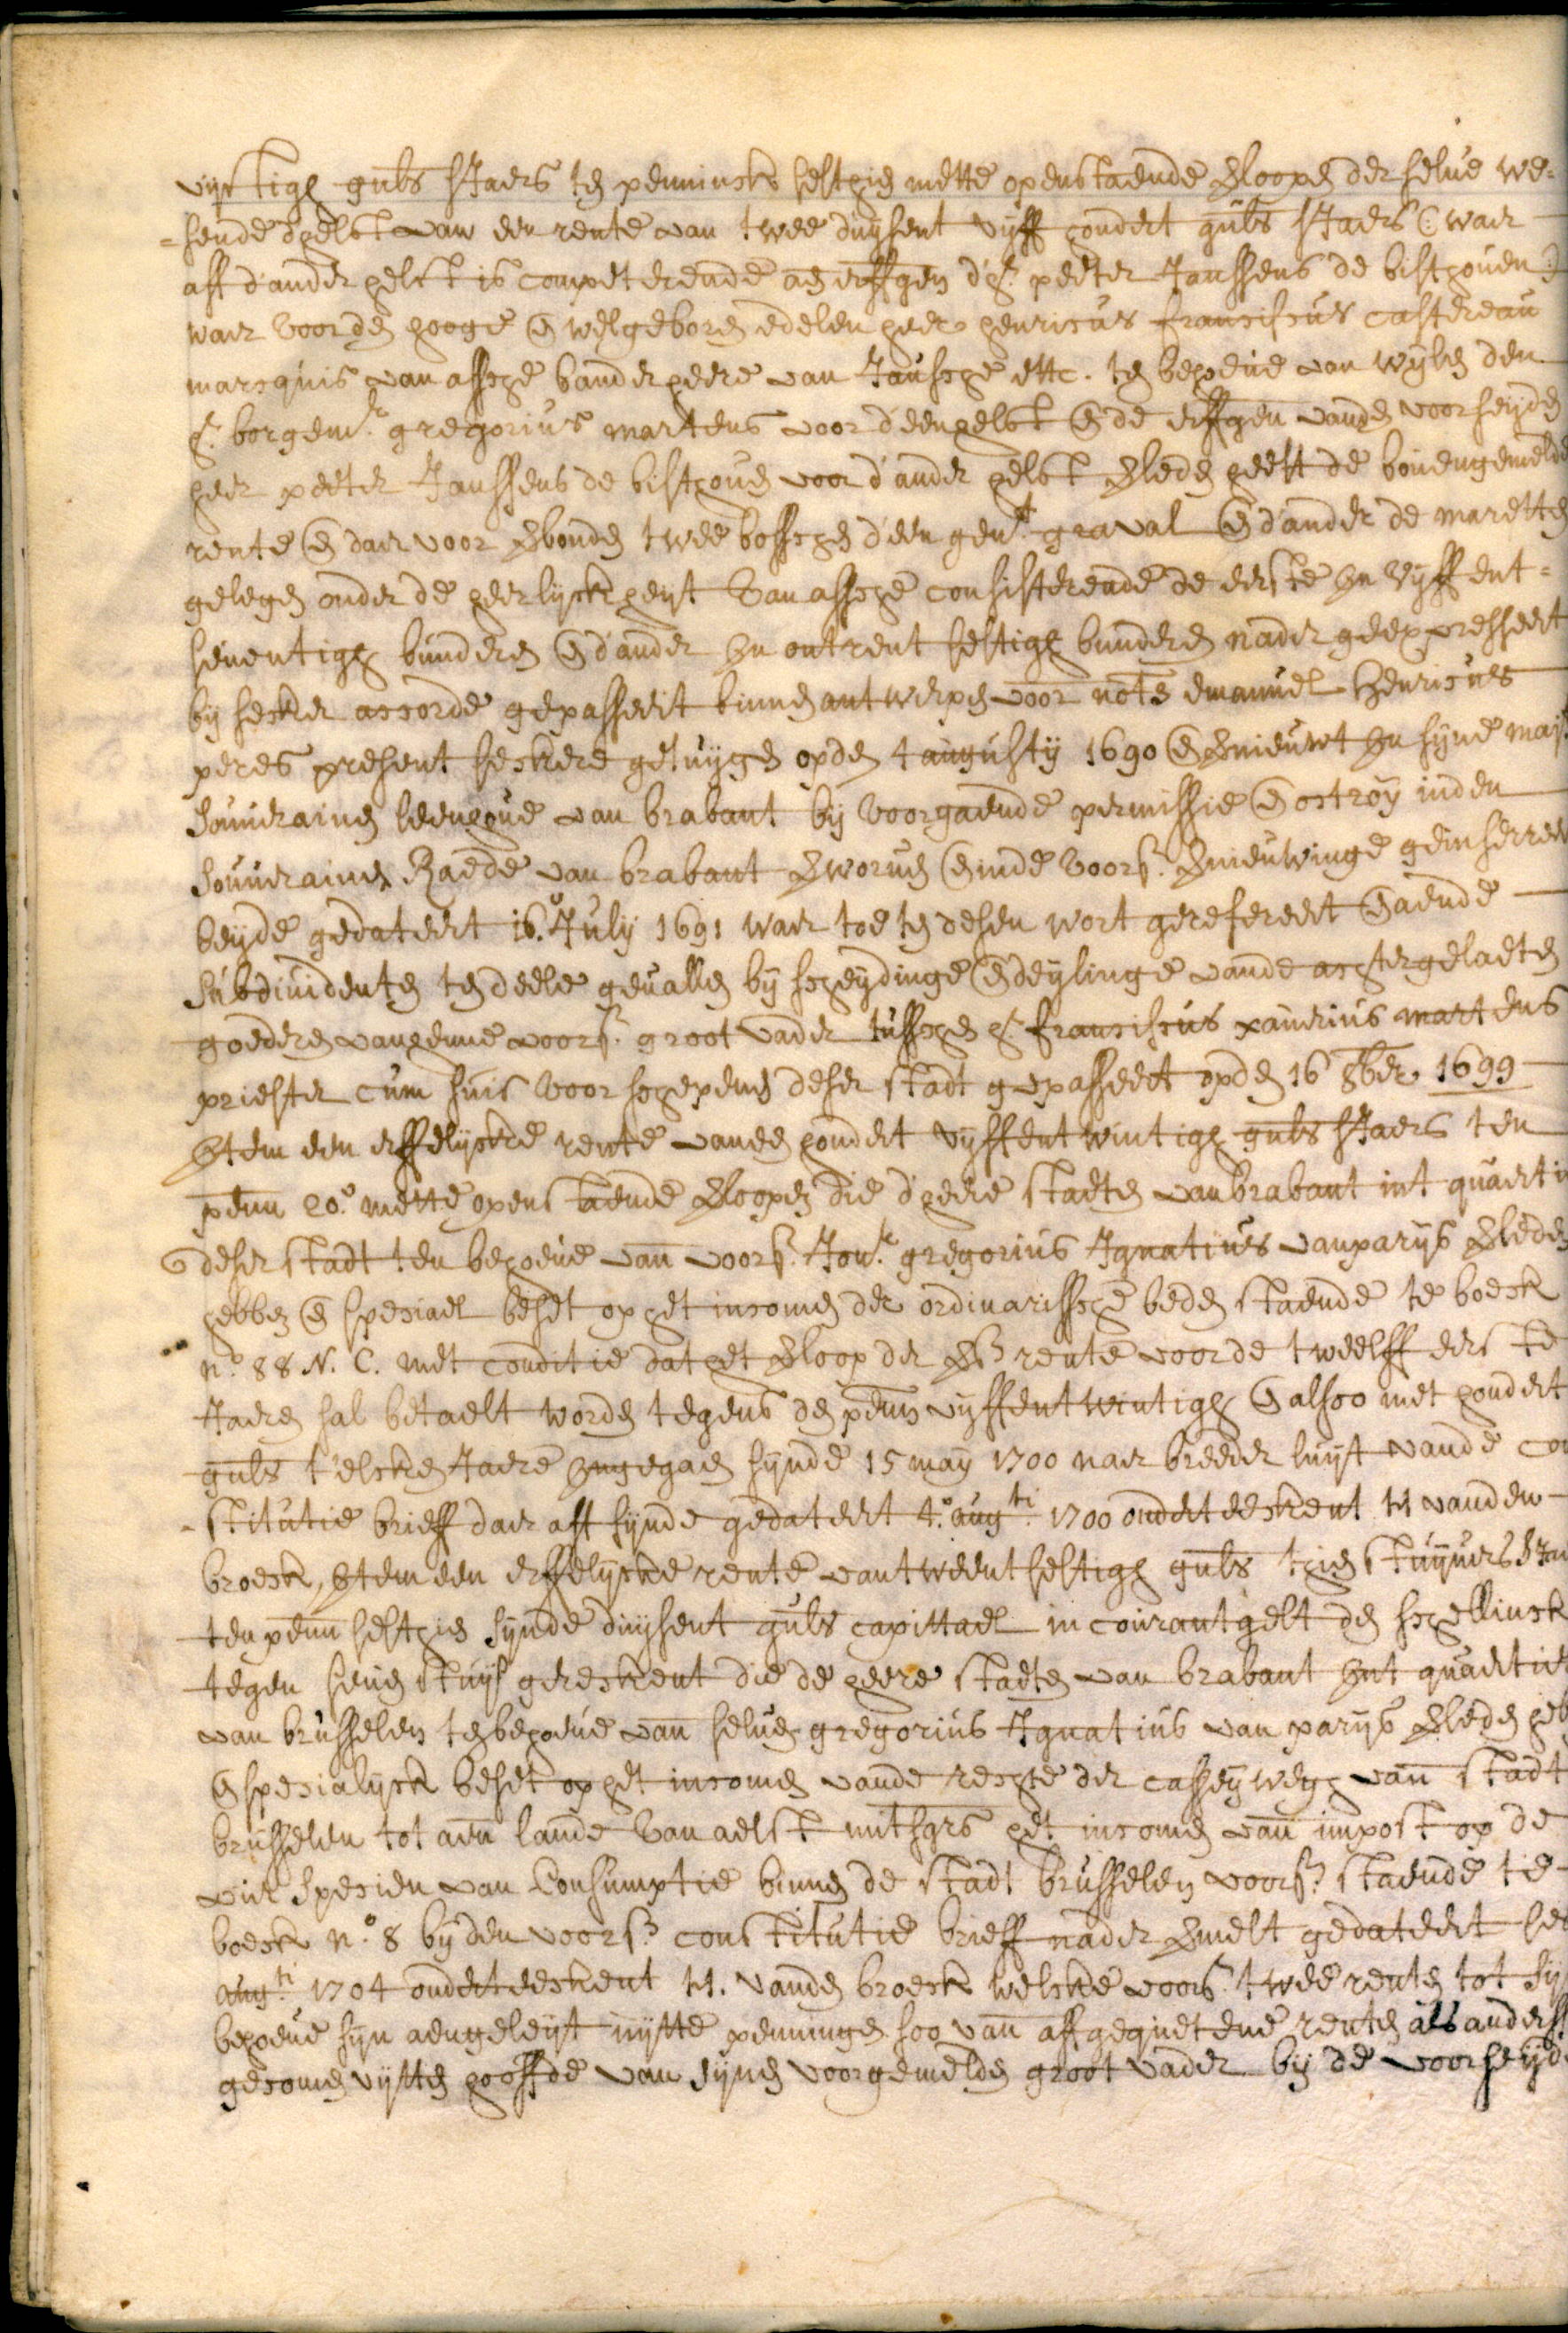 vijftigh guls sJaers ten penninck sesthien mette openstaende verloopen der selve we=
=sende dhelft van een rente van twee duysent vijff hondert guls sJaers (: waer
aff d'ander helft is competerende aen erffgen d'hr peeter Janssens de bisthoven :)
waer voor den hooge en welgeboren edelen heer henricus franciscus castereau
marcquis van assche banderheere van Jaussche ettc. ten behoeve van wylen den
hr. borgemr. gregorius martens voor d'een helft en de erffgen vanden voorseyden
heer peeter Janssens de bisthoven voor d'ander helft verleden heeft de bovengemelde
rente en daer voor verbonden twee bosschen d'een gent graval en d'ander de maretten
gelegen onder de heerlijckheyt van assche consisterende de eerste in vijffent=
seventigh bunderen en d'ander in ontrent sestigh bunderen naerder geexpresseert
bij seker accorde gepasseert binnen antwerpen voor nots emanuel Henricus
peres present sekere getuygen opden 4 augusty 1690 en vernieuwt in syne majt
souverainen leenhove van brabant bij voorgaende permissie en octroy inden
souverainen Raede van brabant verworven en inde voors. vernieuwinge geinsereert
beyde gedateert 16. July 1691 waer toe ten desen wort gerefereert en aende
subdividenten ten deele gevallen bij scheydinge en deylinge vande achtergelaeten
goederen van henne voors. groot vader tusschen hr. franciscus xaverius martens
priester cum suis voor schepenen deser stadt gepasseert opden 16 8ber 1699
Item een erffelijcke rente van een hondert vijffentwintigh guls sJaers ten
penn 20.e mette openstaende verloopen die d'heere staeten van brabant int quartier
deser stadt ten behoeve van voors. Jonr. gregorius Ignatius van parijs verleden
hebben en speciael beset op het incomen der ordinarissche beden staende te boeck
no. 88 N. C. met conditie dat het verloop der vs. rente voor de tweelff eerste
Jaeren sal betaelt worden tegens den penn vijffentwintigh en alsoo met hondert
guls t'elcken Jaere ingegaen synde 15 may 1700 naer breeder luyt vande con
=stitutie brieff daer aff synde gedateert 4. augti 1700 onderteekent H. vanden
broeck, Item een erffelijcke rente van tweentsestigh guls thien stuyvers sJaers
ten penn sesthien synde duysent guls capittael in courant gelt den schellinck
tegen seven stuyvers gerekent die de heere staeten van brabant int quartier
van brusselen ten behoeve van selven gregorius Ignatius van parijs verleden heb
en specialijck beset op het incomen vande rechte der casseyweg van stadt
brusselen tot aen lande van aelst mitsgrs het incomen van impost op de
vier specien van Consumptie binnen de stadt brusselen voors. staende te
boeck no. 8 bij den voors. constitutie brieff naerder vermelt gedateert
augti 1704 onderteekent H. vanden broeck welcke voors. twee renten tot sy
behoeve syn aengeleyt uytte penningen soo van affgequetene renten als anderss
gecomen uytten hooffde van synen voorgemelden groot vader bij de voorseyde